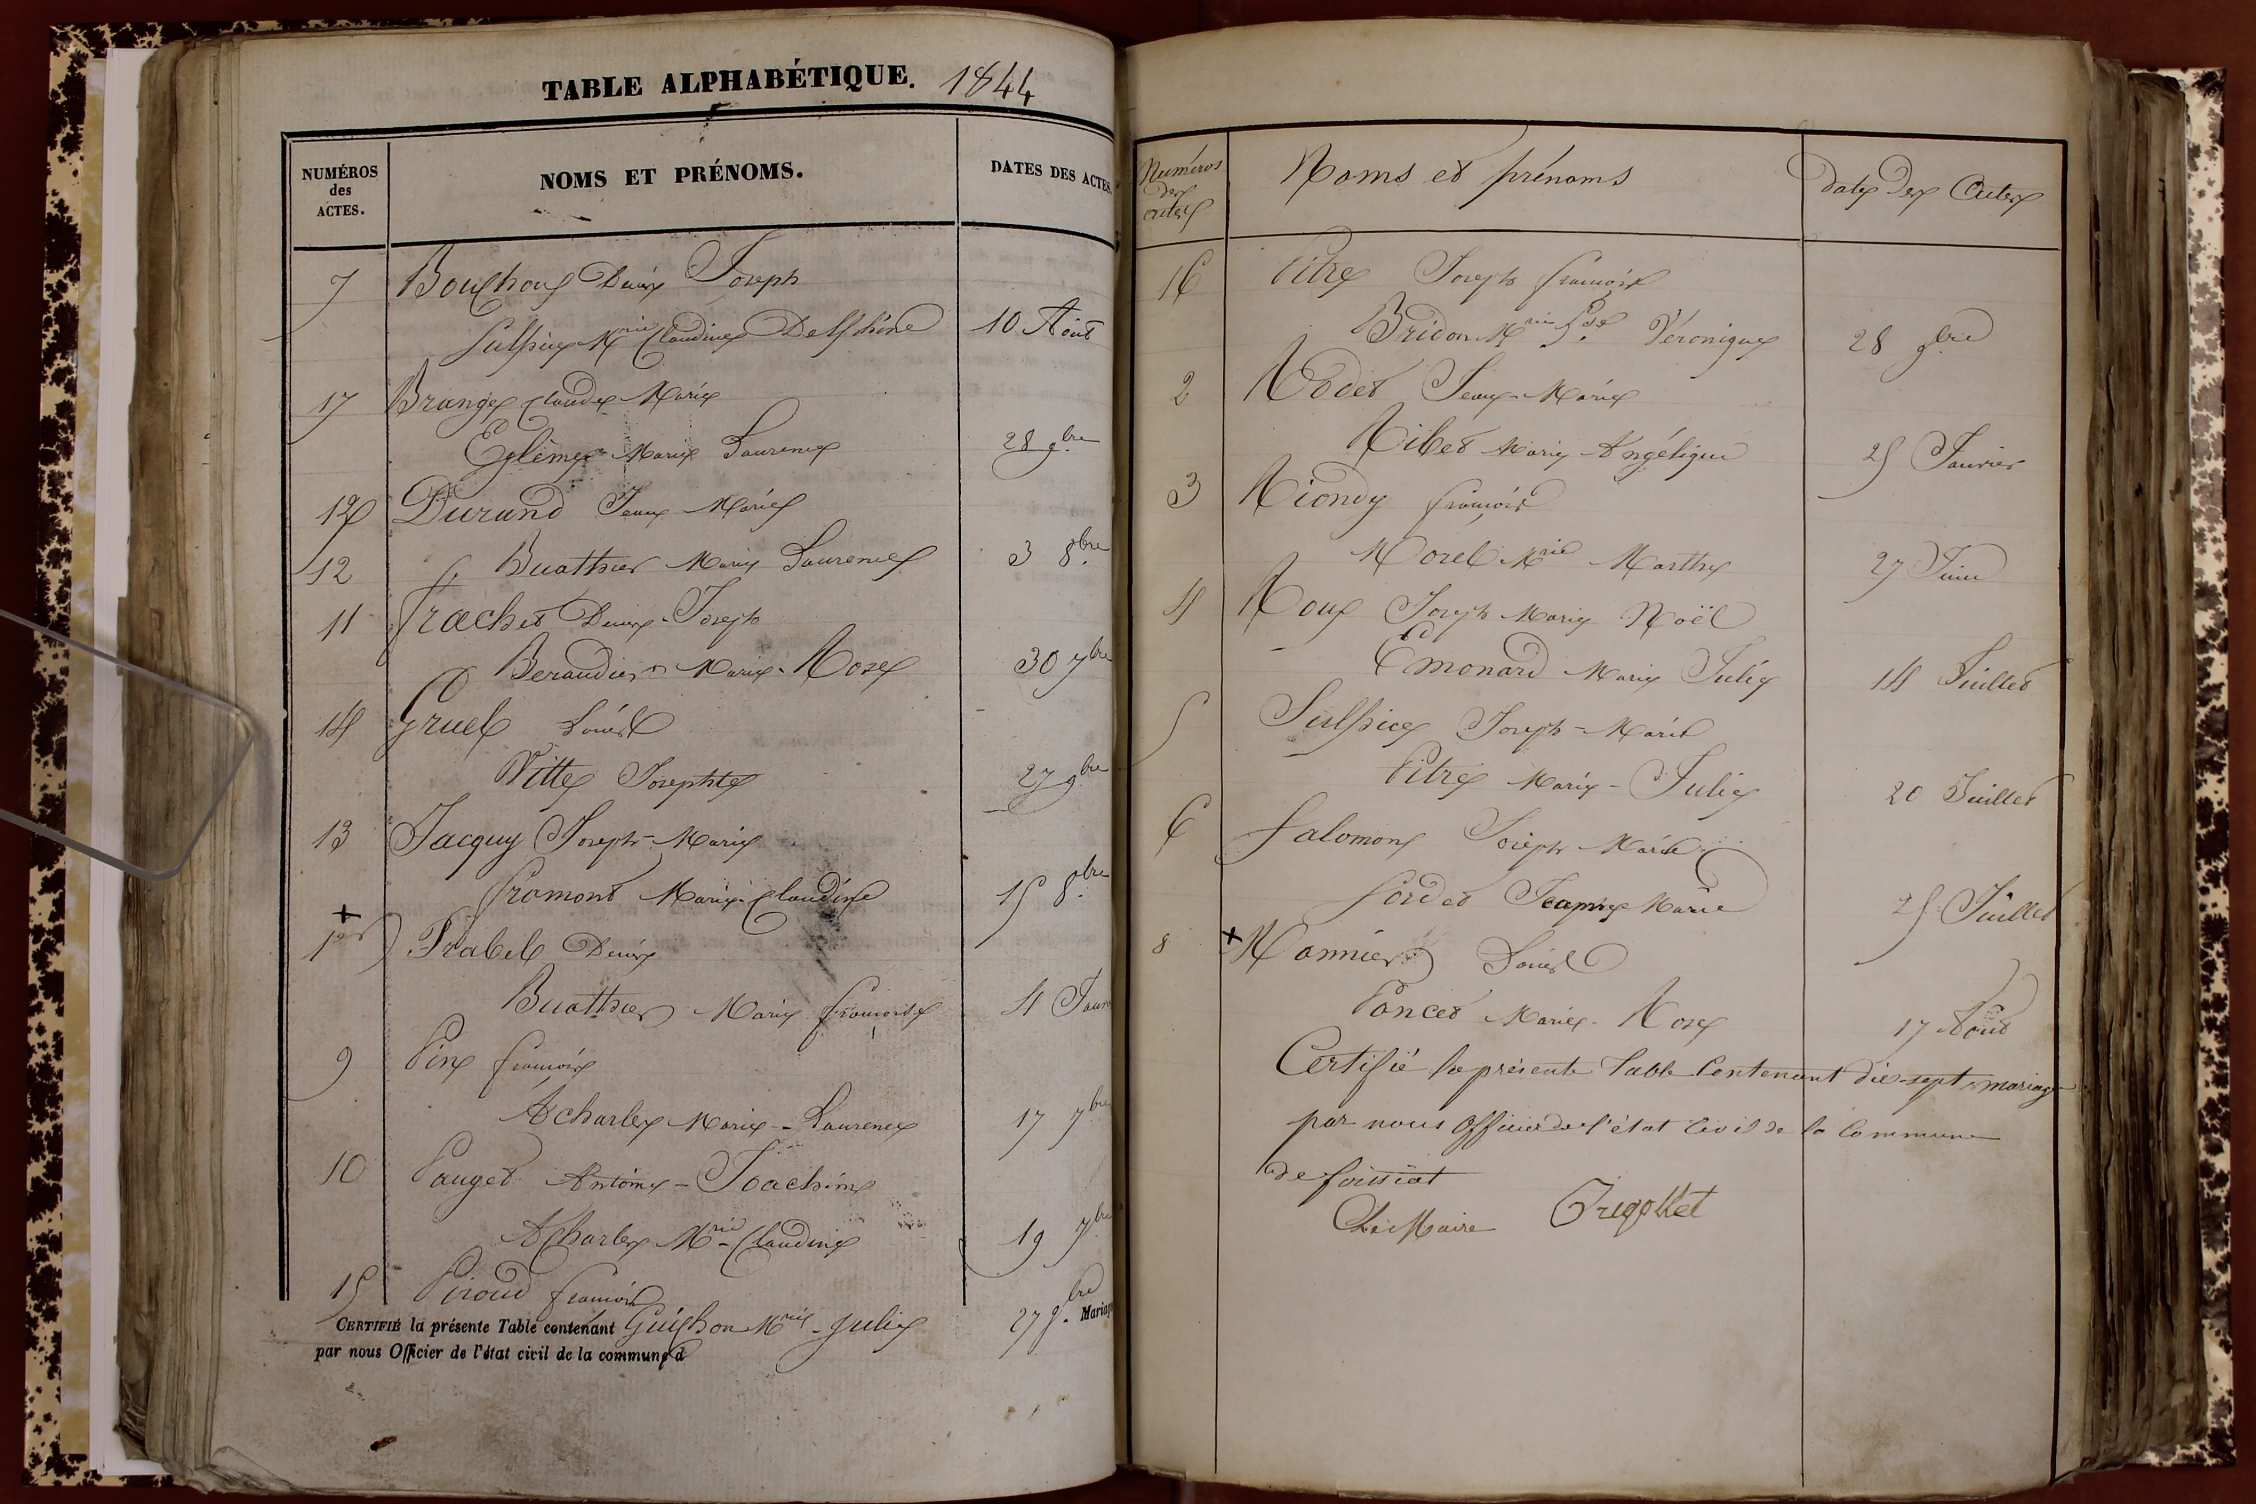 TABLE ALPHABÉTIQUE. 1844
NUMÉROS des ACTES.
NOMS ET PRÉNOMS.
DATES DES ACTES
7 Bouchoux Denis Joseph
Sulpice Mrie Claudine Delphine 10 Aout
17 Brange Claude Marie
Eglème Marie Laurence 28 9bre
Durand Jean Marie
12 Buathier Marie Laurence 3 8bre
11 Frachet Denis Joseph
Beraudier Marie Rose 30 7bre
14 Gruel Louis
Vitte Josephte 27 9bre
13 Jacquy Joseph-Marie
Fromont Marie Claudine 15 8bre
1er Prabel Denis
Buathier Marie Françoise 4 Janv
9 Pin François
Acharles Marie-Laurence 17 7bre
10 Pauget Antoine-Joachim
Acharles Mrie Claudine 19 7bre
15 Piroud François
CERTIFIÉ la présente Table contenant Guichon Mrie-Julie 27 9bre Mariag
par nous Officier de l'état civil de la commune d
Numéros des actes
Noms et prénoms
Dates des Actes
16 Pitre Joseph François
Bridon Mrie Véronique 28 9bre
2 Rodet Jean-Marie
Ribet Marie Angélique 25 Janvier
3 Riondy François
Morel Mrie Marthe 27 Juin
4 Roux Joseph Marie Noël
Emonard Marie Julie 14 Juillet
5 Sulpice Joseph-Marie
Pitre Marie-Julie 20 Juillet
6 Salomon Joseph Marie
Sordet Jeanne Marie 25 Juillet
8 Monnier Louis
Poncet Marie-Rose 17 Aout
Certifié la présente Table Contenant dix-sept mariage
par nous Officier de l'état Civil de la Commune
de foissiat
Le Maire